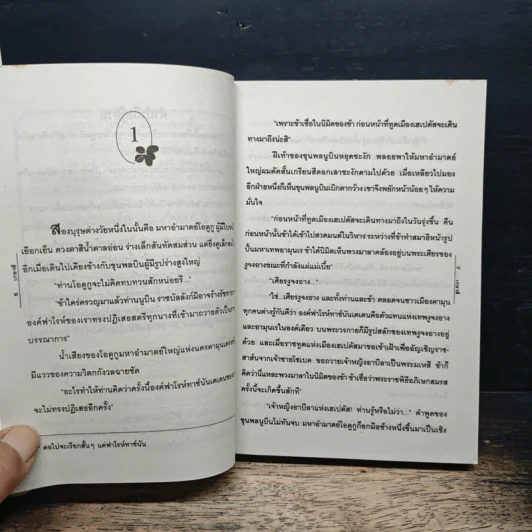 1
สองบุรุษต่างวัยหนึ่งในนั้นคือ มหาอำมาตย์โอดูกู ผู้มีใบหน้า
เยือกเย็น ดวงตาสีน้ำตาลอ่อน ร่างเล็กสันทัดสมส่วน แต่ยิ่งดูเล็กลง
อีกเมื่อเดินไปเคียงข้างกับขุนพลบูบินผู้มีรูปร่างสูงใหญ่
"ท่านโอดูกูจะไม่คิดทบทวนสักหน่อยรึ..."
"ข้าใคร่ครวญมาแล้วท่านบูบิน ราชบัลลังก์มีอาจร้างรัชทายาท
องค์ฟาโรห์ของเราทรงปฏิเสธสตรีทุกนางที่เข้ามาถวายตัวเป็น
บรรณาการ"
น้ำเสียงของโอดูกูมหาอำมาตย์ใหญ่แห่งนครคามุน
มีแววของความวิตกกังวลฉายชัด
"อะไรทำให้ท่านคิดว่าครั้งนี้องค์ฟาโรห์ทาร์นันเตเดน
จะไม่ทรงปฏิเสธอีกครั้ง"
ต่อไปจะเรียกสั้นๆ แต่ฟาโรห์ทาร์นัน
"เพราะข้าเชื่อในนิมิตของข้า ก่อนหน้าที่ทูตเมืองเฮเปตัสจะเดิน
ทางมาถึงน่ะสิ"
ฝีเท้าของขุนพลบูบินหยุดชะงัก พลอยพาให้มหาอำมาตย์
ใหญ่ผมดัดสั้นเกรียนสีดอกเลาชะงักตามไปด้วย เมื่อเหลียวไปมอง
อีกฝ่ายหนึ่งก็เห็นขุนพลบูบินเบิกตากว้าง เขาจึงพยักหน้าน้อยๆ ให้ความ
มั่นใจ
"ก่อนหน้าที่ทูตเมืองเฮเปตัสจะเดินทางมาถึงในวันรุ่งขึ้น คืน
ก่อนหน้านั้นข้าได้เข้าไปสวดมนต์ในวิหาร ระหว่างที่ข้าทำสมาธิหน้ารูป
ปั้นมหาเทพอามุนเร ข้าได้นิมิตเห็นพวงมาลาคล้องอยู่บนพระเศียรของ
งูจงอางขณะที่กำลังแผ่แม่เบี้ย"
"เศียรงูจงอาง..."
"ใช่...เศียรงูจงอาง และทั้งท่านและข้า ตลอดจนชาวเมืองคามุน
ทุกคนต่างรู้กันดีว่า องค์ฟาโรห์ทาร์นันเตเดนคือตัวแทนแห่งเทพงูจงอาง
และอามุนเรในองค์เดียว บนพระวรกายก็มีรูปสลักของเทพงูจงอางอยู่
ด้วย และเมื่อราชทูตแห่งเมืองเฮเปตัสมาขอเข้าเฝ้าเพื่ออัญเชิญราช-
สาส์นจากเจ้าชายโซเบค ขอถวายเจ้าหญิงอาบีลาเป็นพระมเหสี ข้าก็
คิดว่านี่แหละพวงมาลาในนิมิตของข้า ข้าเชื่อว่าพระราชพิธีอภิเษกสมรส
ครั้งนี้จะเกิดขึ้นสักที"
"เจ้าหญิงอาบีลาแห่งเฮเปตัส! ท่านรู้หรือไม่ว่า..." คำพูดของ
ขุนพลบูบินไม่ทันจบ มหาอำมาตย์โอดูกูก็ยกมือข้างหนึ่งขึ้นมาเป็นเชิง